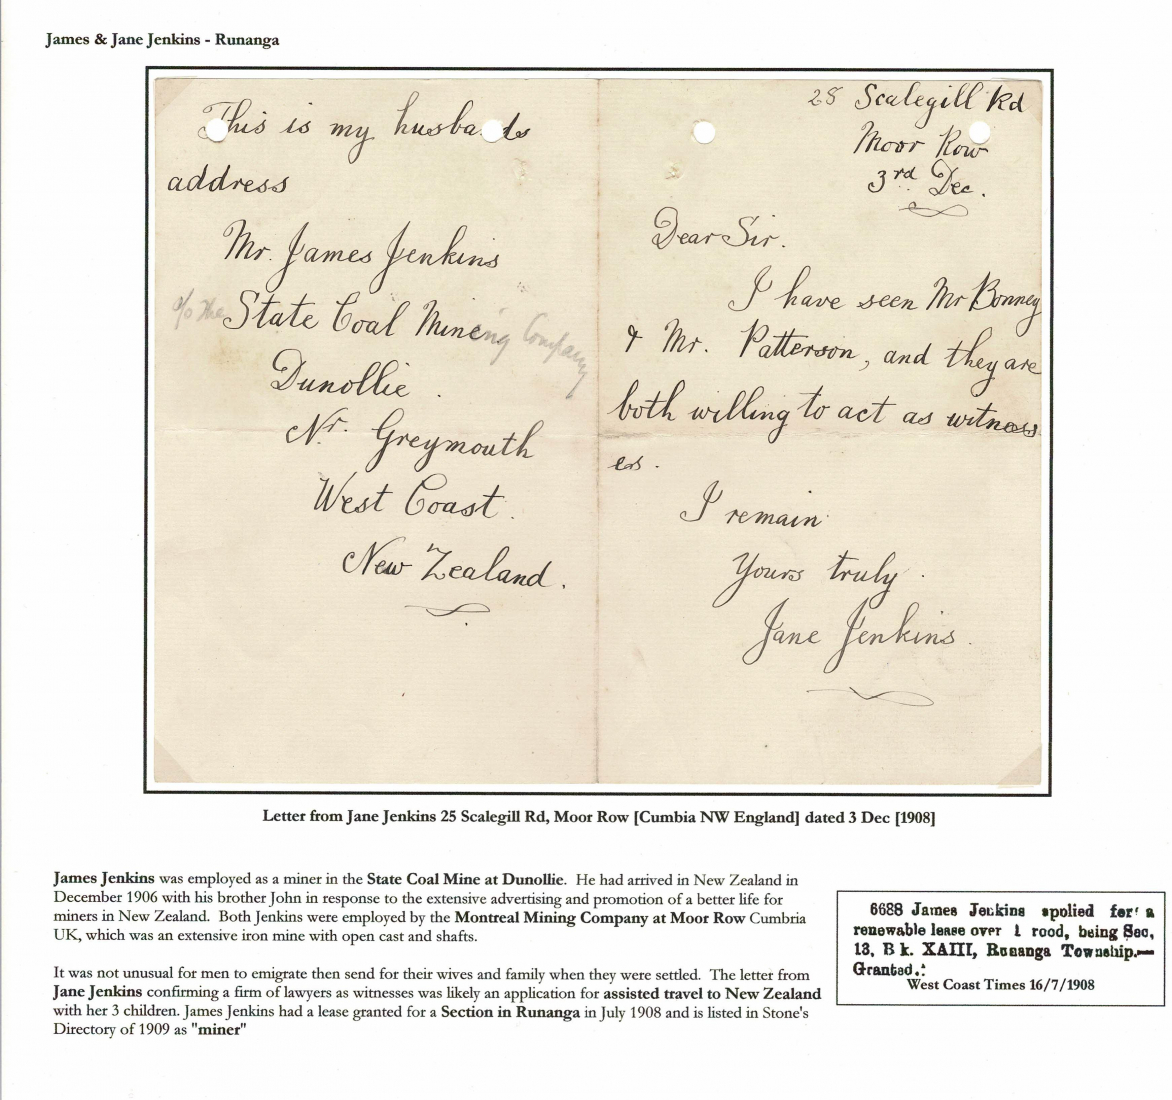 James & Jane Jenkins - Runanga
This is my husbands
address
Mr. James Jenkins
c/o The State Coal Mineing Company
Dunollie.
Nr. Greymouth
West Coast.
New Zealand.
25 Scalegill Rd
Moor Row
3rd Dec.
Dear Sir.
I have seen Mr Bonney
& Mr. Patterson, and they are
both willing to act as witness
es.
I remain
Yours truly.
Jane Jenkins.
Letter from Jane Jenkins 25 Scalegill Rd, Moor Row [Cumbia NW England] dated 3 Dec [1908]
James Jenkins was employed as a miner in the State Coal Mine at Dunollie. He had arrived in New Zealand in
December 1906 with his brother John in response to the extensive advertising and promotion of a better life for
miners in New Zealand. Both Jenkins were employed by the Montreal Mining Company at Moor Row Cumbria
UK, which was an extensive iron mine with open cast and shafts.
It was not unusual for men to emigrate then send for their wives and family when they were settled. The letter from
Jane Jenkins confirming a firm of lawyers as witnesses was likely an application for assisted travel to New Zealand
with her 3 children. James Jenkins had a lease granted for a Section in Runanga in July 1908 and is listed in Stone's
Directory of 1909 as "miner"
6688 James Jenkins applied for a
renewable lease over 1 rood, being Sec,
13, Bk. XAIII, Runanga Township.—
Granted.
West Coast Times 16/7/1908